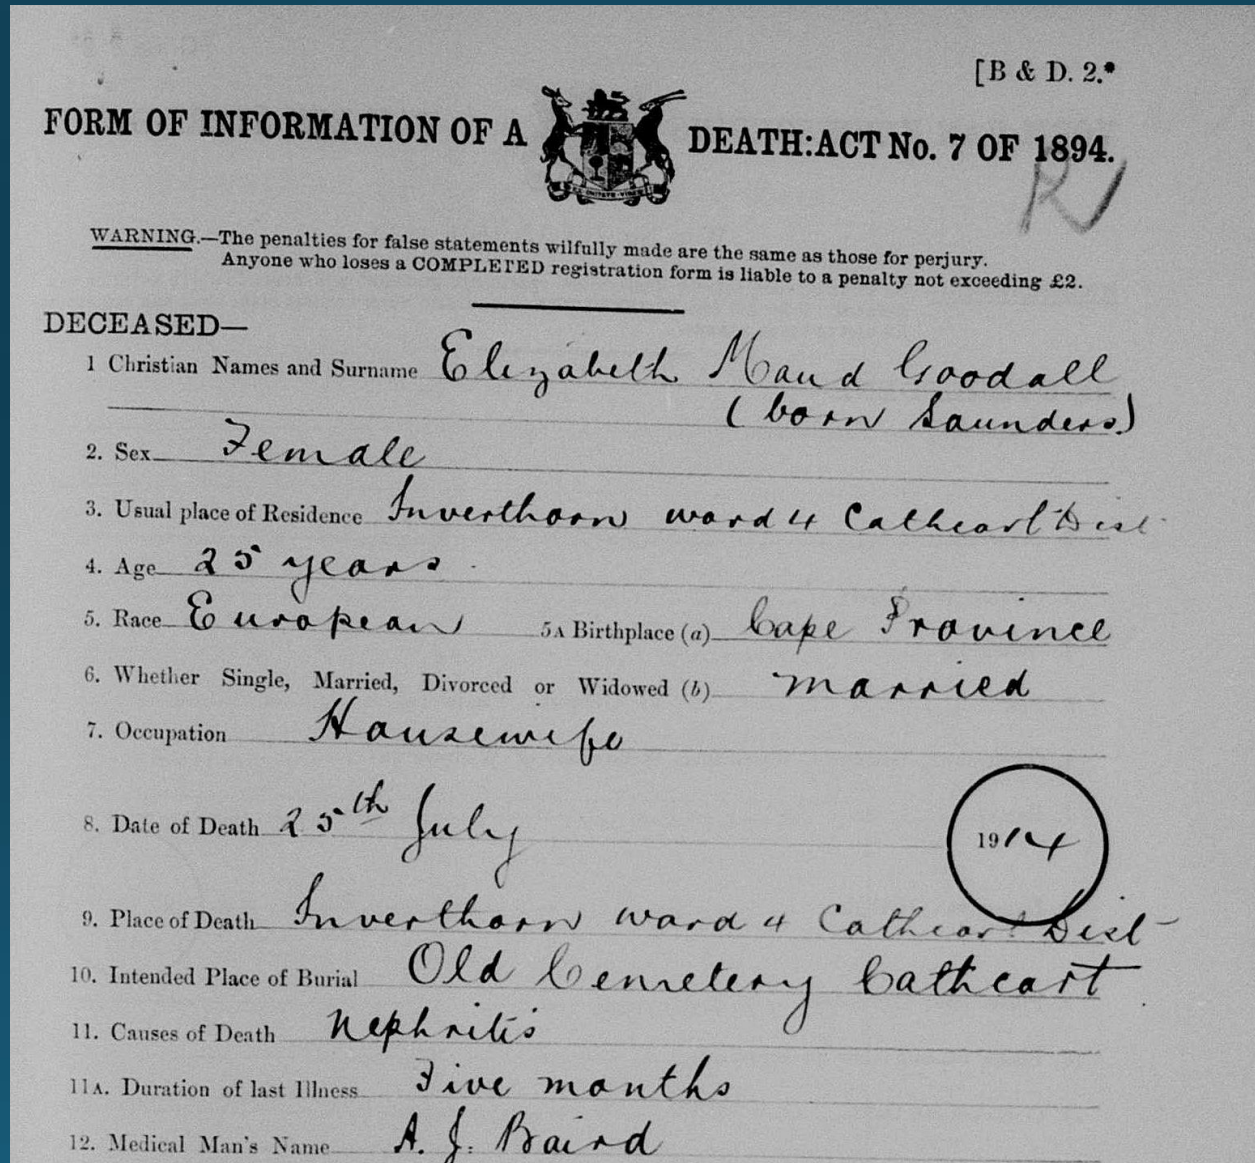 [B & D. 2.*
FORM OF INFORMATION OF A DEATH: ACT No. 7 OF 1894.
WARNING.—The penalties for false statements wilfully made are the same as those for perjury.
Anyone who loses a COMPLETED registration form is liable to a penalty not exceeding £2.
DECEASED—
1 Christian Names and Surname Elizabeth Maud Goodall
(born Saunders)
2. Sex Female
3. Usual place of Residence Inverthorn ward 4 Cathcart Dist
4. Age 25 years
5. Race European 5A Birthplace (a) Cape Province
6. Whether Single, Married, Divorced or Widowed (b) married
7. Occupation Housewife
8. Date of Death 25th July 1914
9. Place of Death Inverthorn ward 4 Cathcart Dist
10. Intended Place of Burial Old Cemetery Cathcart
11. Causes of Death Nephritis
11A. Duration of last Illness Five months
12. Medical Man's Name A. J. Baird